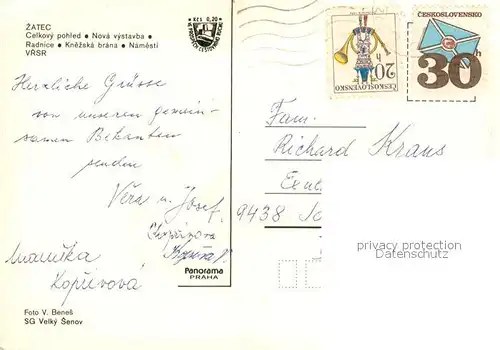 ŽATEC
Celkový pohled • Nová výstavba •
Radnice • Kněžská brána • Náměstí
VŘSR
Kčs 0,20
Herzliche Grüsse
von unserem gemein-
samen Bekannten
senden
Věra u. Josef
Mamika
Kopřivová
Panorama
PRAHA
Foto V. Beneš
SG Velký Šenov
20 h
ČESKOSLOVENSKO
ČESKOSLOVENSKO
30h
Fam.
Richard Kraus
9438
privacy protection
Datenschutz